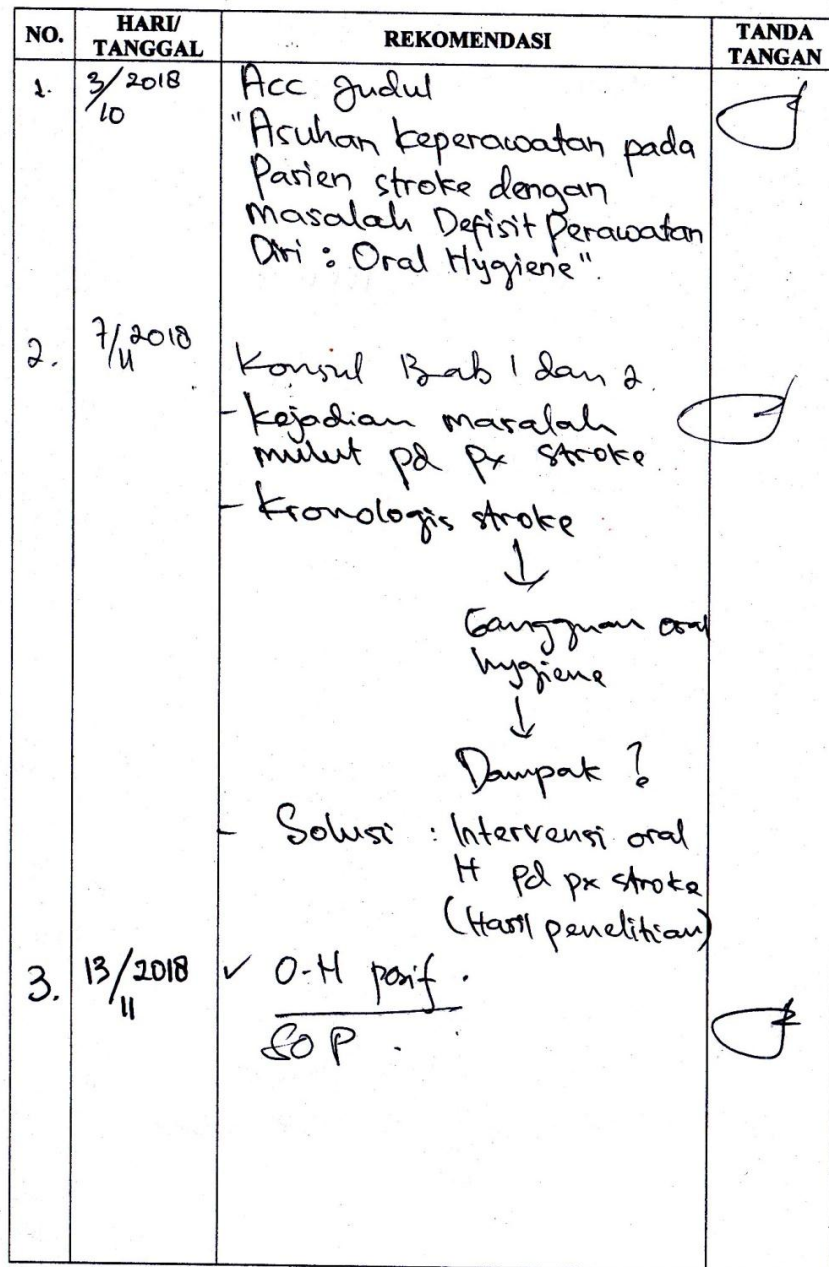 NO.
HARI/
TANGGAL
REKOMENDASI
TANDA
TANGAN
1.
3/10 2018
Acc Judul
"Asuhan keperawatan pada
Pasien stroke dengan
masalah Defisit Perawatan
Diri : Oral Hygiene".
2.
7/11 2018
Konsul Bab 1 dan 2.
- kejadian masalah
mulut pd px stroke
- Kronologis stroke
↓
Gangguan oral
hygiene
↓
Dampak ?
- Solusi : Intervensi oral
H pd px stroke
(Hasil penelitian)
3.
13/11 2018
✓ O-H pasif.
SOP.